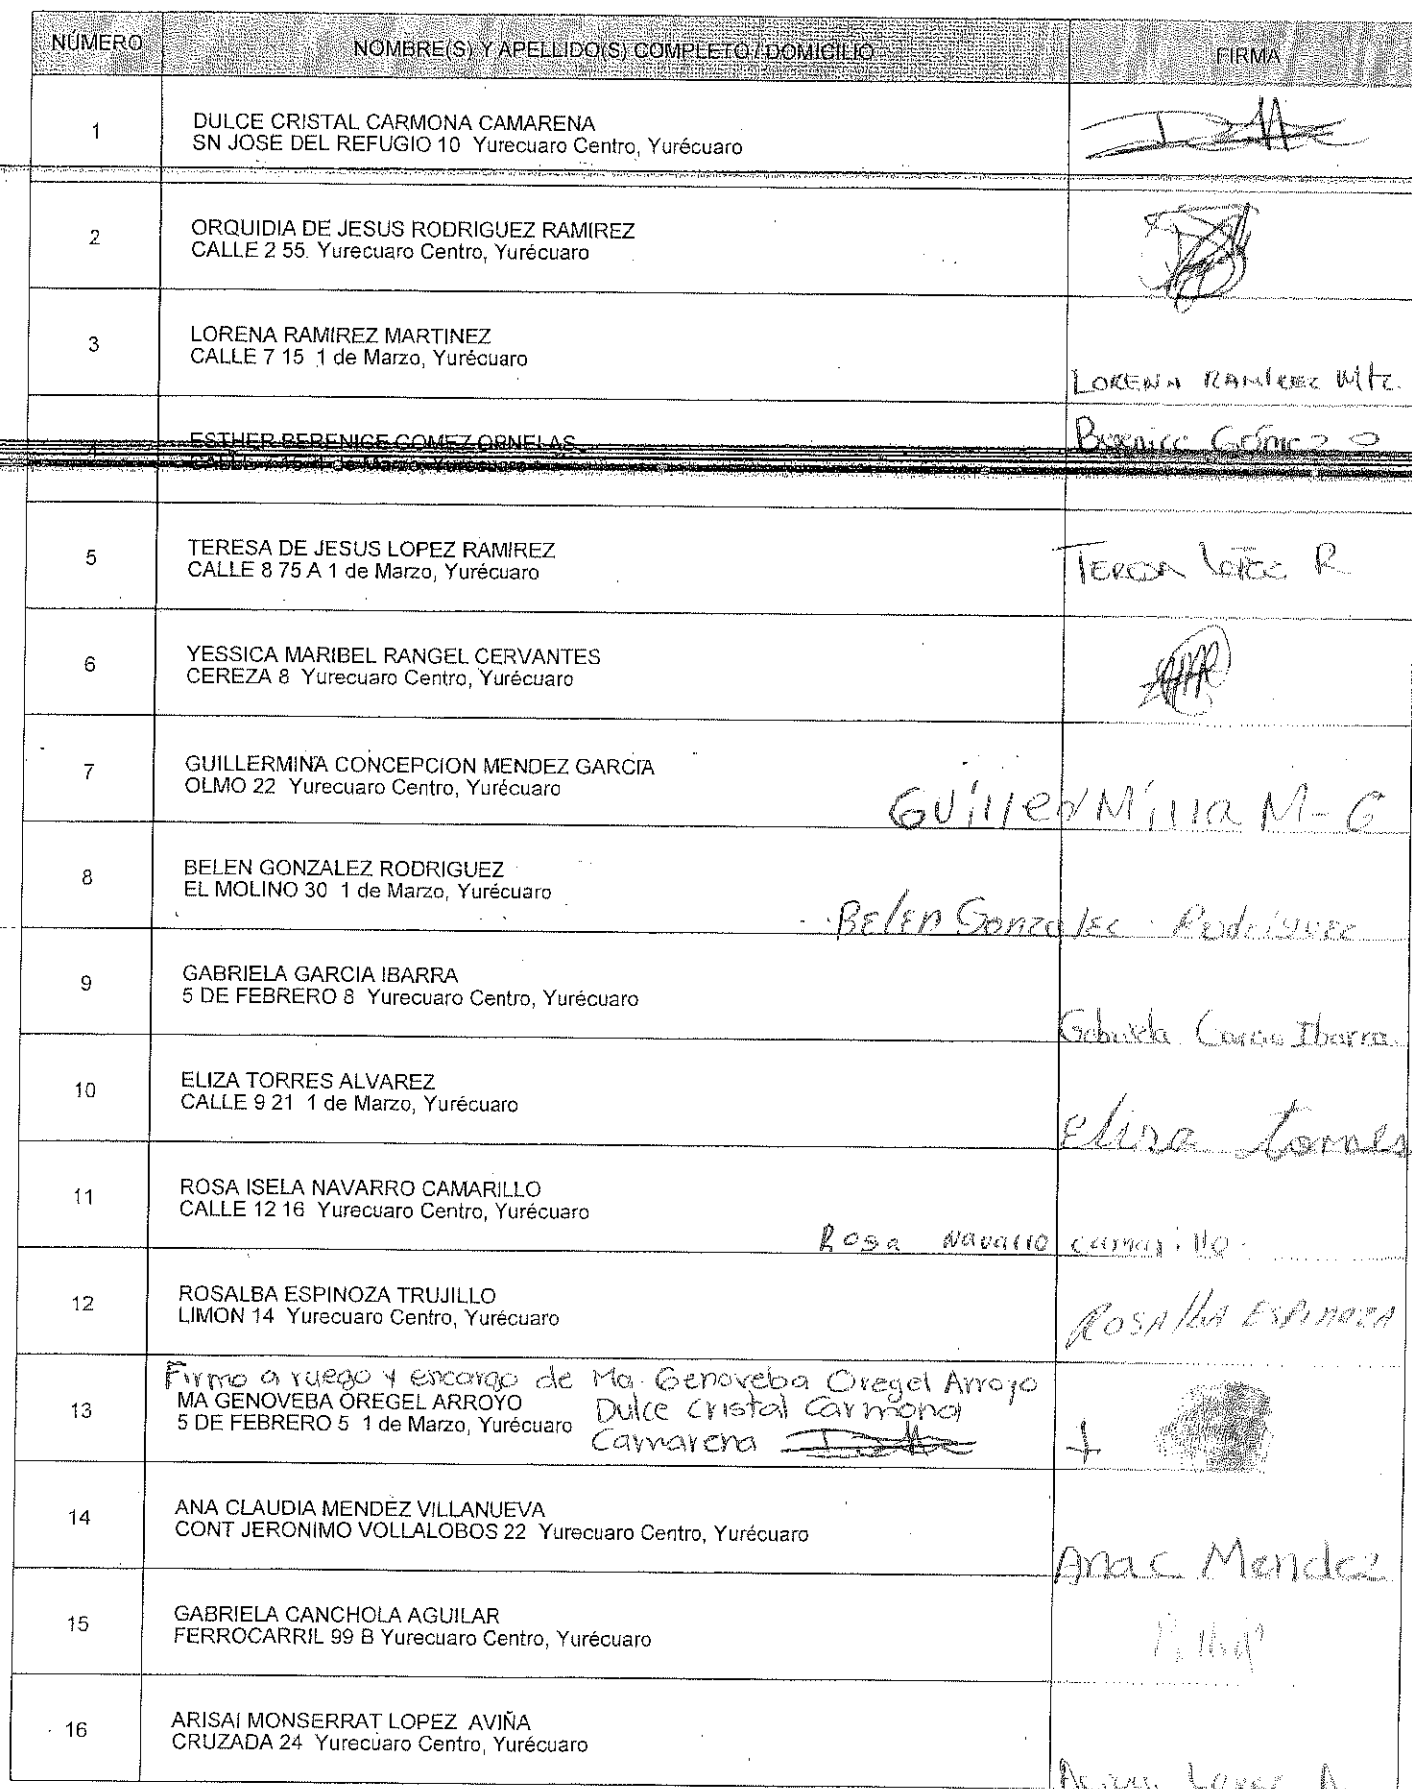 NÚMERO NOMBRE(S) Y APELLIDO(S) COMPLETO / DOMICILIO FIRMA
1 DULCE CRISTAL CARMONA CAMARENA
SN JOSE DEL REFUGIO 10 Yurecuaro Centro, Yurécuaro
2 ORQUIDIA DE JESUS RODRIGUEZ RAMIREZ
CALLE 2 55 Yurecuaro Centro, Yurécuaro
3 LORENA RAMIREZ MARTINEZ
CALLE 7 15 1 de Marzo, Yurécuaro
LORENA RAMIREZ Mtz.
4 ESTHER BERENICE GOMEZ ORNELAS
CALLE 7 15 1 de Marzo, Yurécuaro
Berenice Gómez O
5 TERESA DE JESUS LOPEZ RAMIREZ
CALLE 8 75 A 1 de Marzo, Yurécuaro
TERESA LOPEZ R
6 YESSICA MARIBEL RANGEL CERVANTES
CEREZA 8 Yurecuaro Centro, Yurécuaro
7 GUILLERMINA CONCEPCION MENDEZ GARCIA
OLMO 22 Yurecuaro Centro, Yurécuaro
GUillerMiNa M-G
8 BELEN GONZALEZ RODRIGUEZ
EL MOLINO 30 1 de Marzo, Yurécuaro
Belen Gonzalez Rodriguez
9 GABRIELA GARCIA IBARRA
5 DE FEBRERO 8 Yurecuaro Centro, Yurécuaro
Gabriela Garcia Ibarra
10 ELIZA TORRES ALVAREZ
CALLE 9 21 1 de Marzo, Yurécuaro
Eliza Torres
11 ROSA ISELA NAVARRO CAMARILLO
CALLE 12 16 Yurecuaro Centro, Yurécuaro
Rosa Navarro camarillo
12 ROSALBA ESPINOZA TRUJILLO
LIMON 14 Yurecuaro Centro, Yurécuaro
ROSAlbA ESPINOZA
Firmo a ruego y encargo de Ma. Genoveba Oregel Arroyo
13 MA GENOVEBA OREGEL ARROYO Dulce Cristal Carmona
5 DE FEBRERO 5 1 de Marzo, Yurécuaro Camarena
14 ANA CLAUDIA MENDEZ VILLANUEVA
CONT JERONIMO VOLLALOBOS 22 Yurecuaro Centro, Yurécuaro
Ana C Mendez
15 GABRIELA CANCHOLA AGUILAR
FERROCARRIL 99 B Yurecuaro Centro, Yurécuaro
16 ARISAI MONSERRAT LOPEZ AVIÑA
CRUZADA 24 Yurecuaro Centro, Yurécuaro
Arisai Lopez A